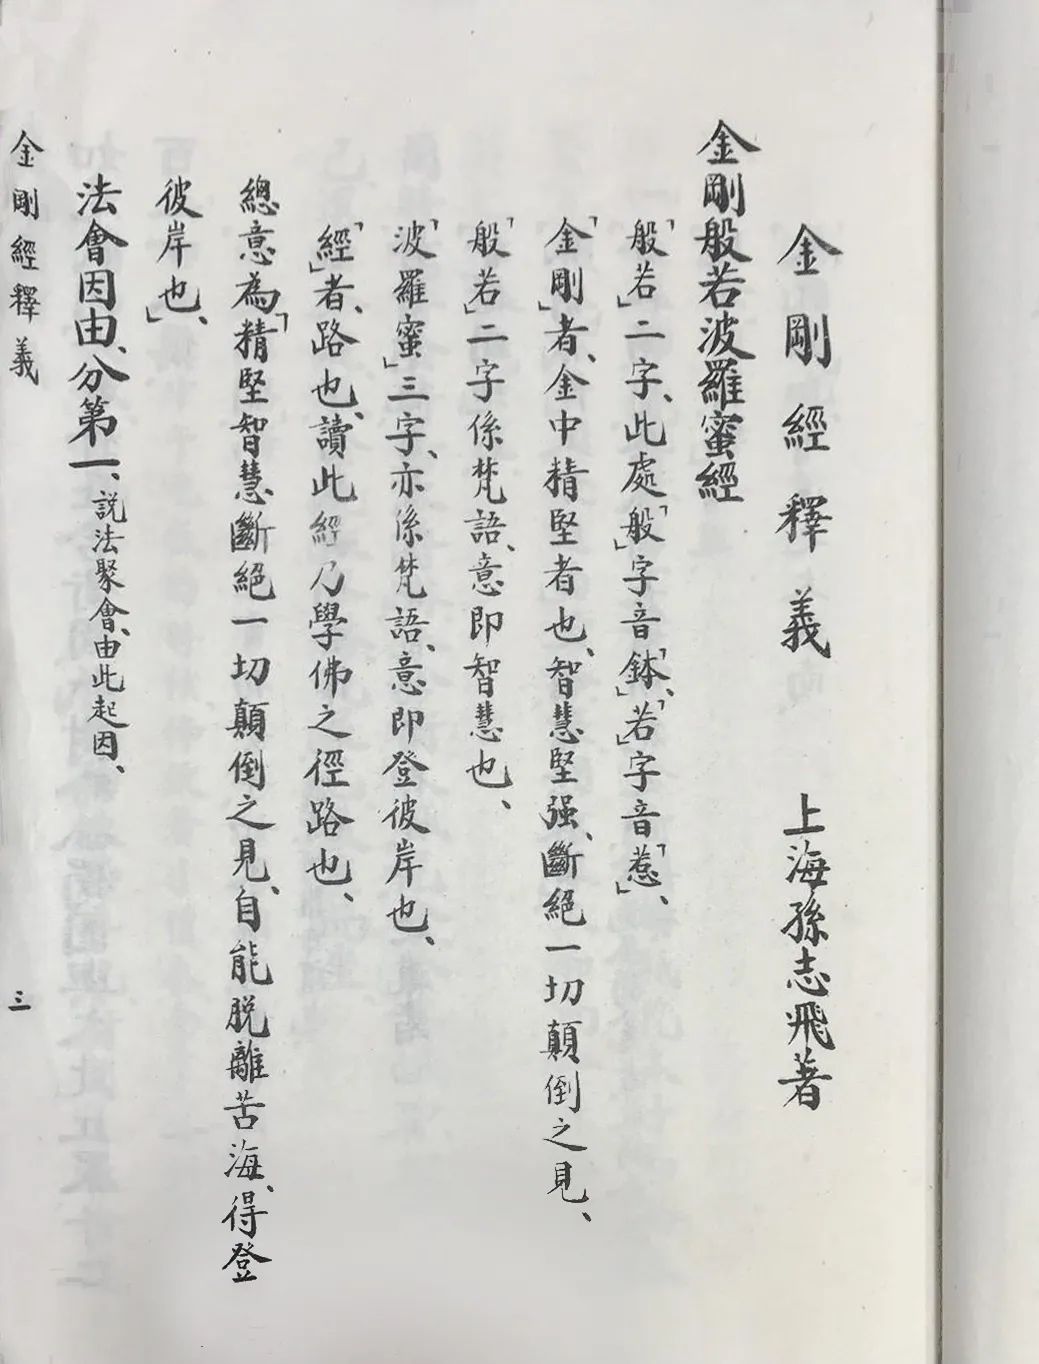 金剛經釋義　上海孫志飛著
金剛般若波羅蜜經
「般若」二字、此處「般」字音「鉢」、「若」字音「惹」、
「金剛」者、金中精堅者也、智慧堅强、斷絕一切顛倒之見、
「般若」二字係梵語、意即智慧也、
「波羅蜜」三字、亦係梵語、意即登彼岸也、
「經」者、路也、讀此經乃學佛之徑路也、
總意為「精堅智慧斷絕一切顛倒之見、自能脫離苦海、得登
彼岸也」、
法會因由、分第一、説法聚會、由此起因、
金剛經釋義
三